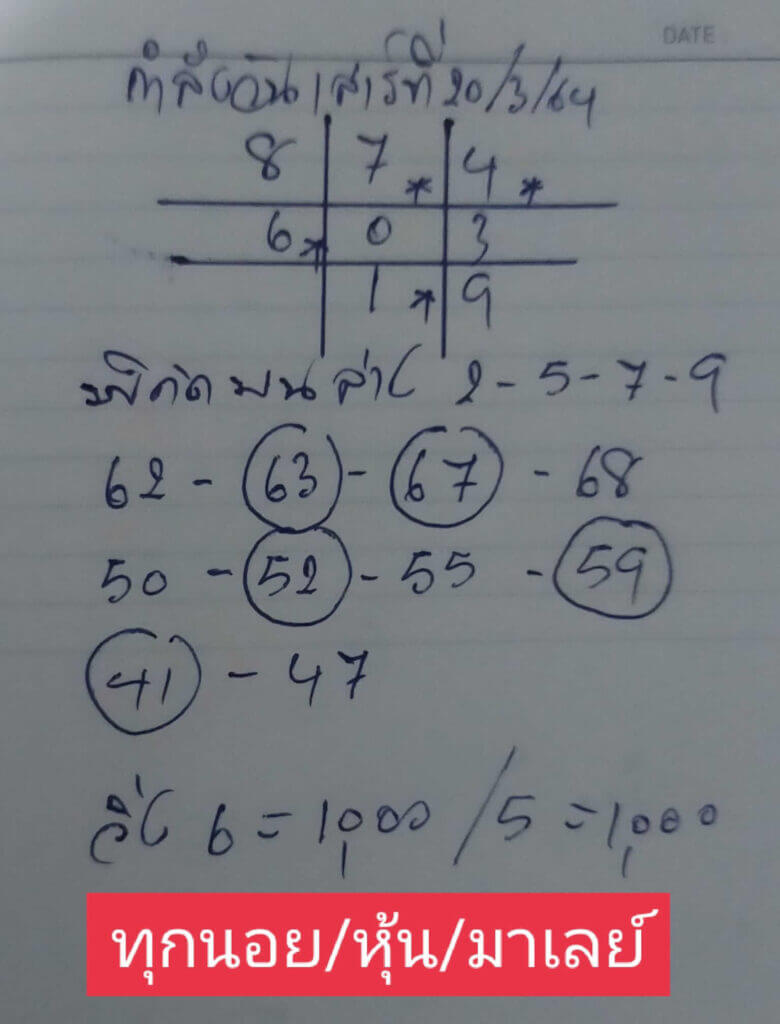 DATE
กำลังวันเสาร์ที่ 20/3/64
8 7* 4*
6* 0 3
1* 9
พิกัด บน ล่าง 2-5-7-9
62 - 63 - 67 - 68
50 - 52 - 55 - 59
41 - 47
วิ่ง 6 = 1,000 / 5 = 1,000
ทุกนอย/หุ้น/มาเลย์